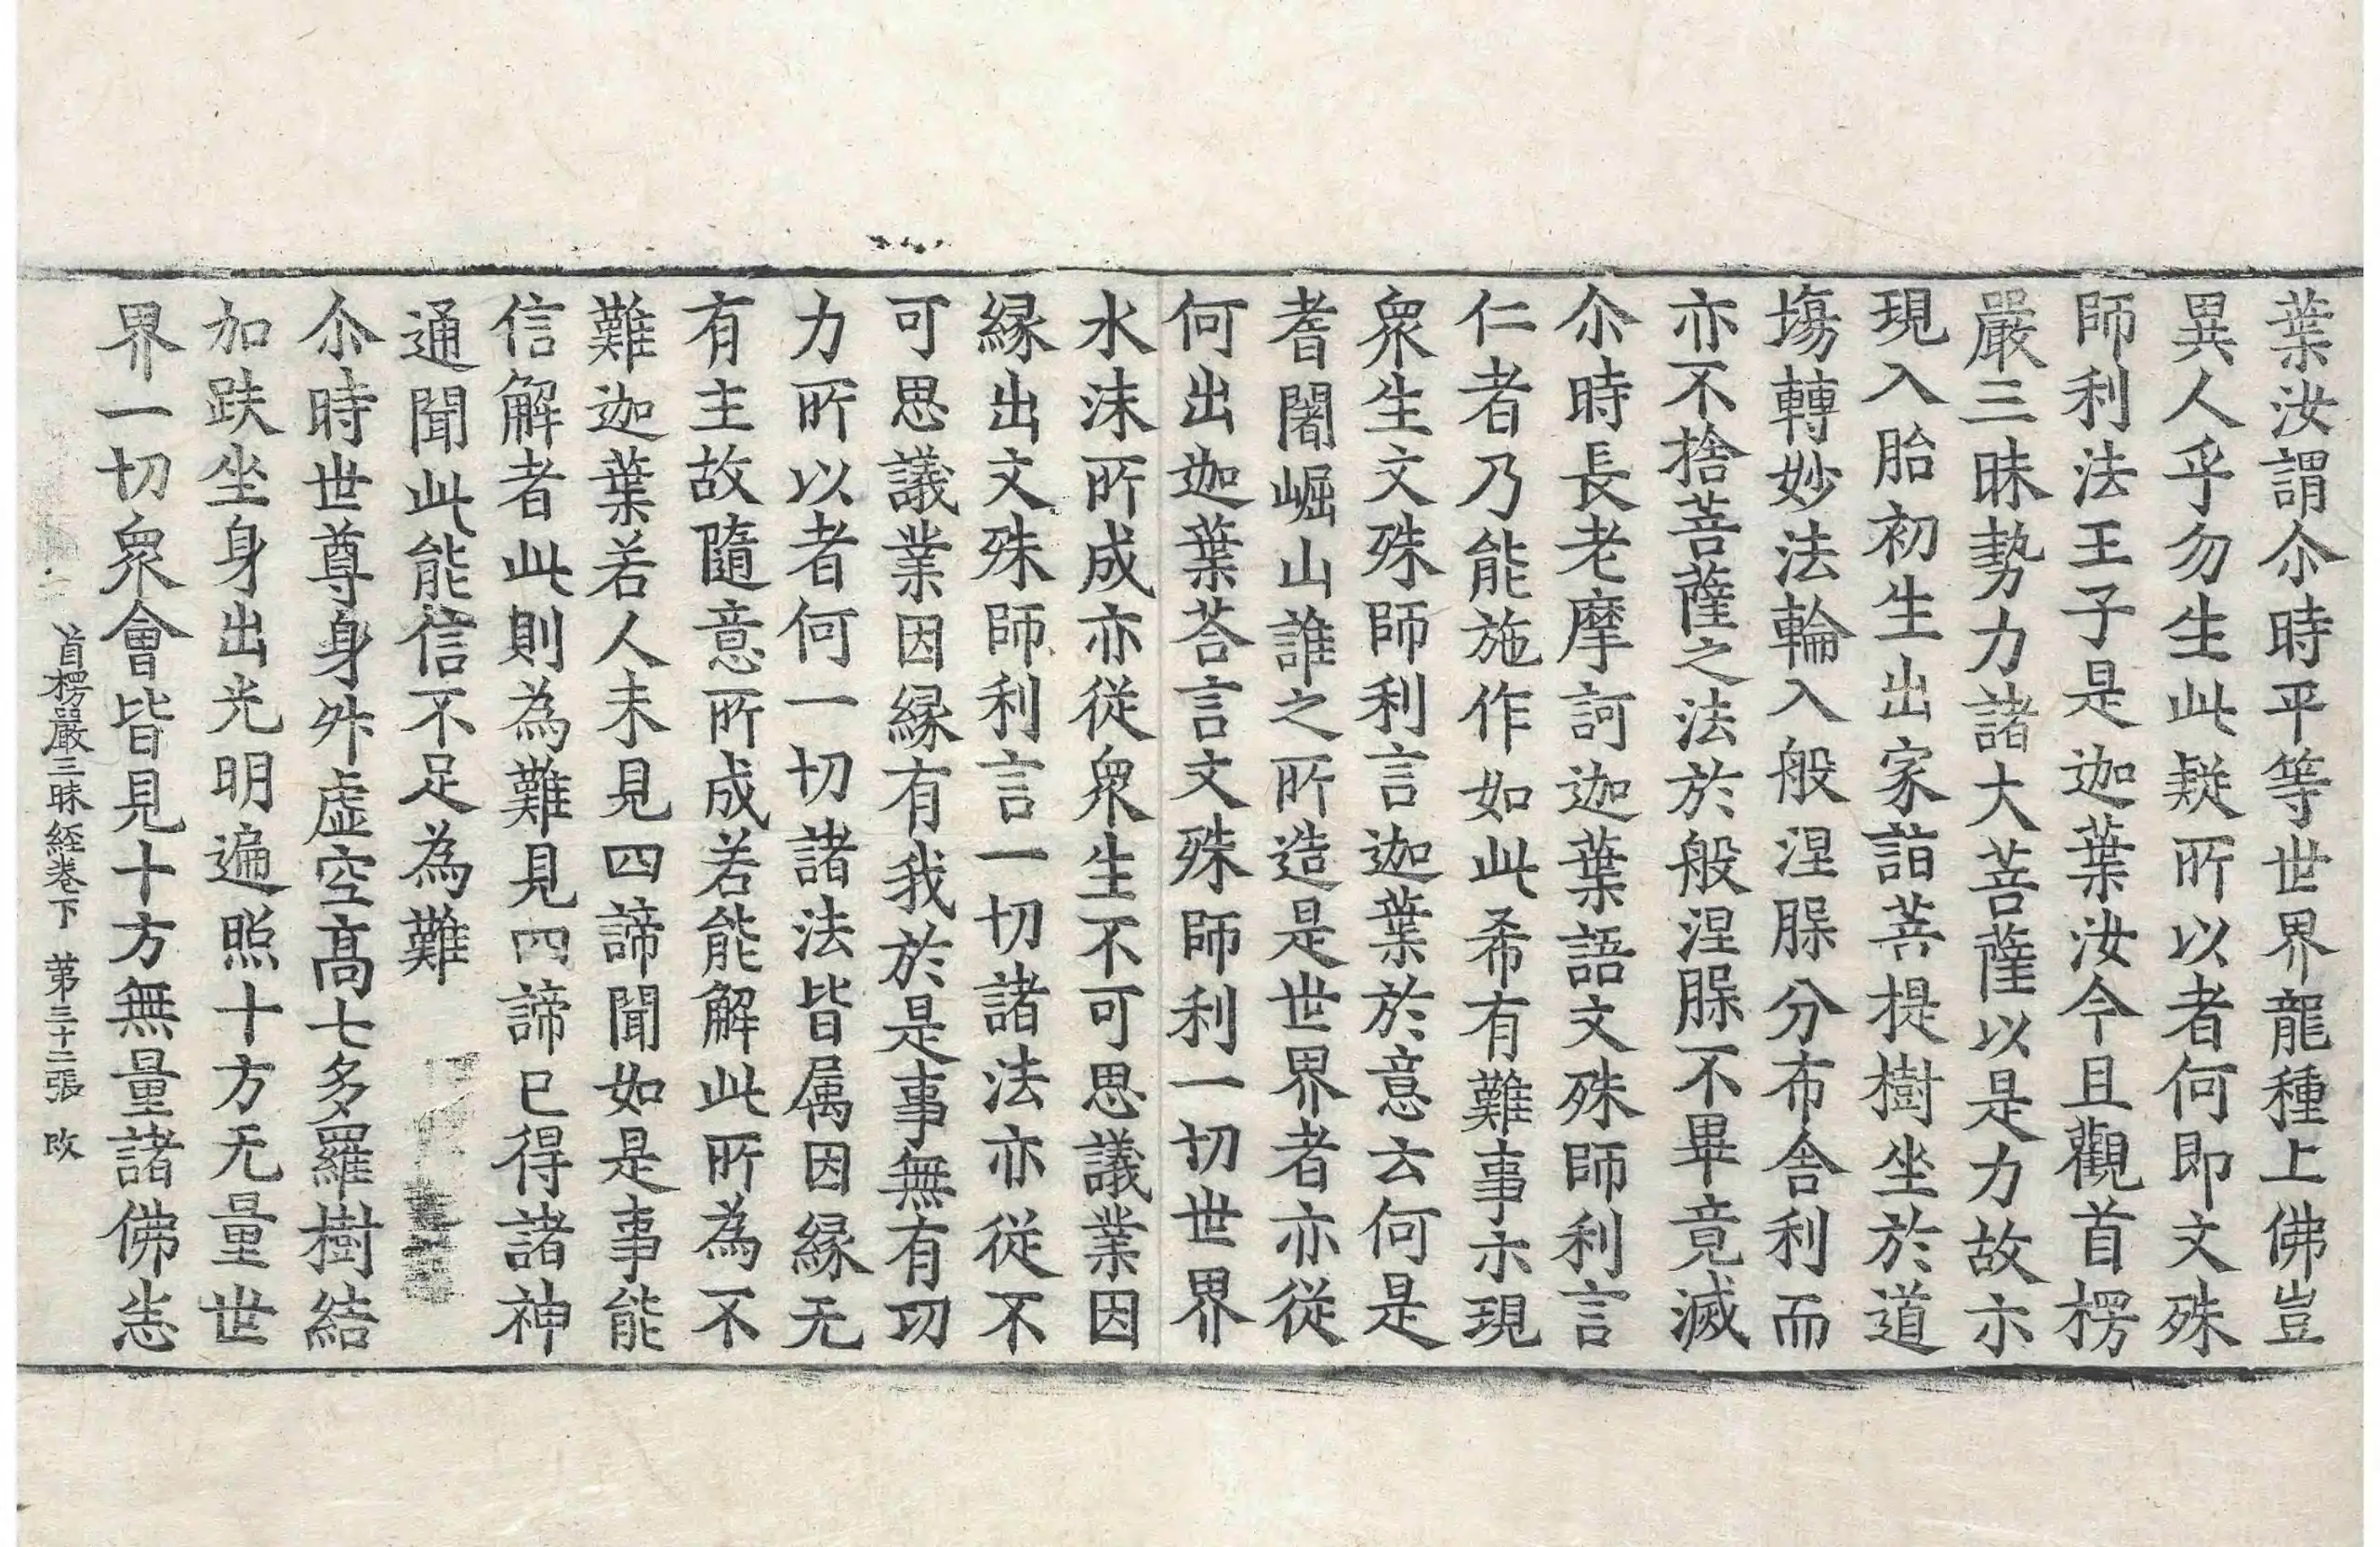 葉汝謂尒時平等世界龍種上佛豈
異人乎勿生此疑所以者何即文殊
師利法王子是迦葉汝今且觀首楞
嚴三昧勢力諸大菩薩以是力故示
現入胎初生出家詣菩提樹坐於道
塲轉妙法輪入般涅脲分布舎利而
亦不捨菩薩之法於般涅脲不畢竟滅
尒時長老摩訶迦葉語文殊師利言
仁者乃能施作如此希有難事示現
衆生文殊師利言迦葉於意云何是
耆闍崛山誰之所造是世界者亦從
何出迦葉荅言文殊師利一切世界
水沫所成亦從衆生不可思議業因
縁出文殊師利言一切諸法亦從不
可思議業因縁有我於是事無有功
力所以者何一切諸法皆属因縁无
有主故隨意所成若能解此所為不
難迦葉若人未見四諦聞如是事能
信解者此則為難見四諦已得諸神
通聞此能信不足為難
尒時世尊身昇虚空髙七多羅樹結
加趺坐身出光明遍照十方无量世
界一切衆會皆見十方無量諸佛悉
首楞嚴三昧経卷下 苐三十二張 改